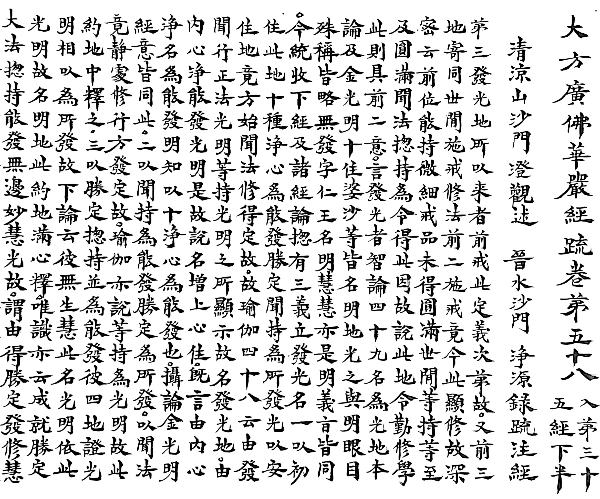 大方廣佛華嚴經疏卷第五十八 入第三十五經下半
清涼山沙門 澄觀述 晉水沙門 淨源錄疏注經
第三發光地所以來者前戒此定義次第故又前三
地寄同世間施戒修法前二施戒竟今此顯修故深
密云前位能持微細戒品未得圓滿世間等持等至
及圓滿聞法揔持為令得此因故說此地令勤修學
此則具前二意言發光者智論四十九名為光地本
論及金光明十住婆沙等皆名明地光之與明眼目
殊稱皆略無發字仁王名明慧慧亦是明義旨皆同
今統收下經及諸經論揔有三義立發光名一以初
住此地十種淨心為能發勝定聞持為所發光以安
住地竟方始聞法修得定故故瑜伽四十八云由發
聞行正法光明等持光明之所顯示故名發光地由
內心淨能發光明是故說名增上心住既言由內心
淨名為能發明知以十淨心為能發也攝論金光明
經意皆同此二以聞持為能發勝定為所發以聞法
竟靜處修行方發定故瑜伽亦說等持為光明故此
約地中釋之三以勝定揔持並為能發彼四地證光
明相以為所發故下論云彼無生慧此名光明依此
光明故名明地此約地滿心釋唯識亦云成就勝定
大法揔持能發無邊妙慧光故謂由得勝定發修慧